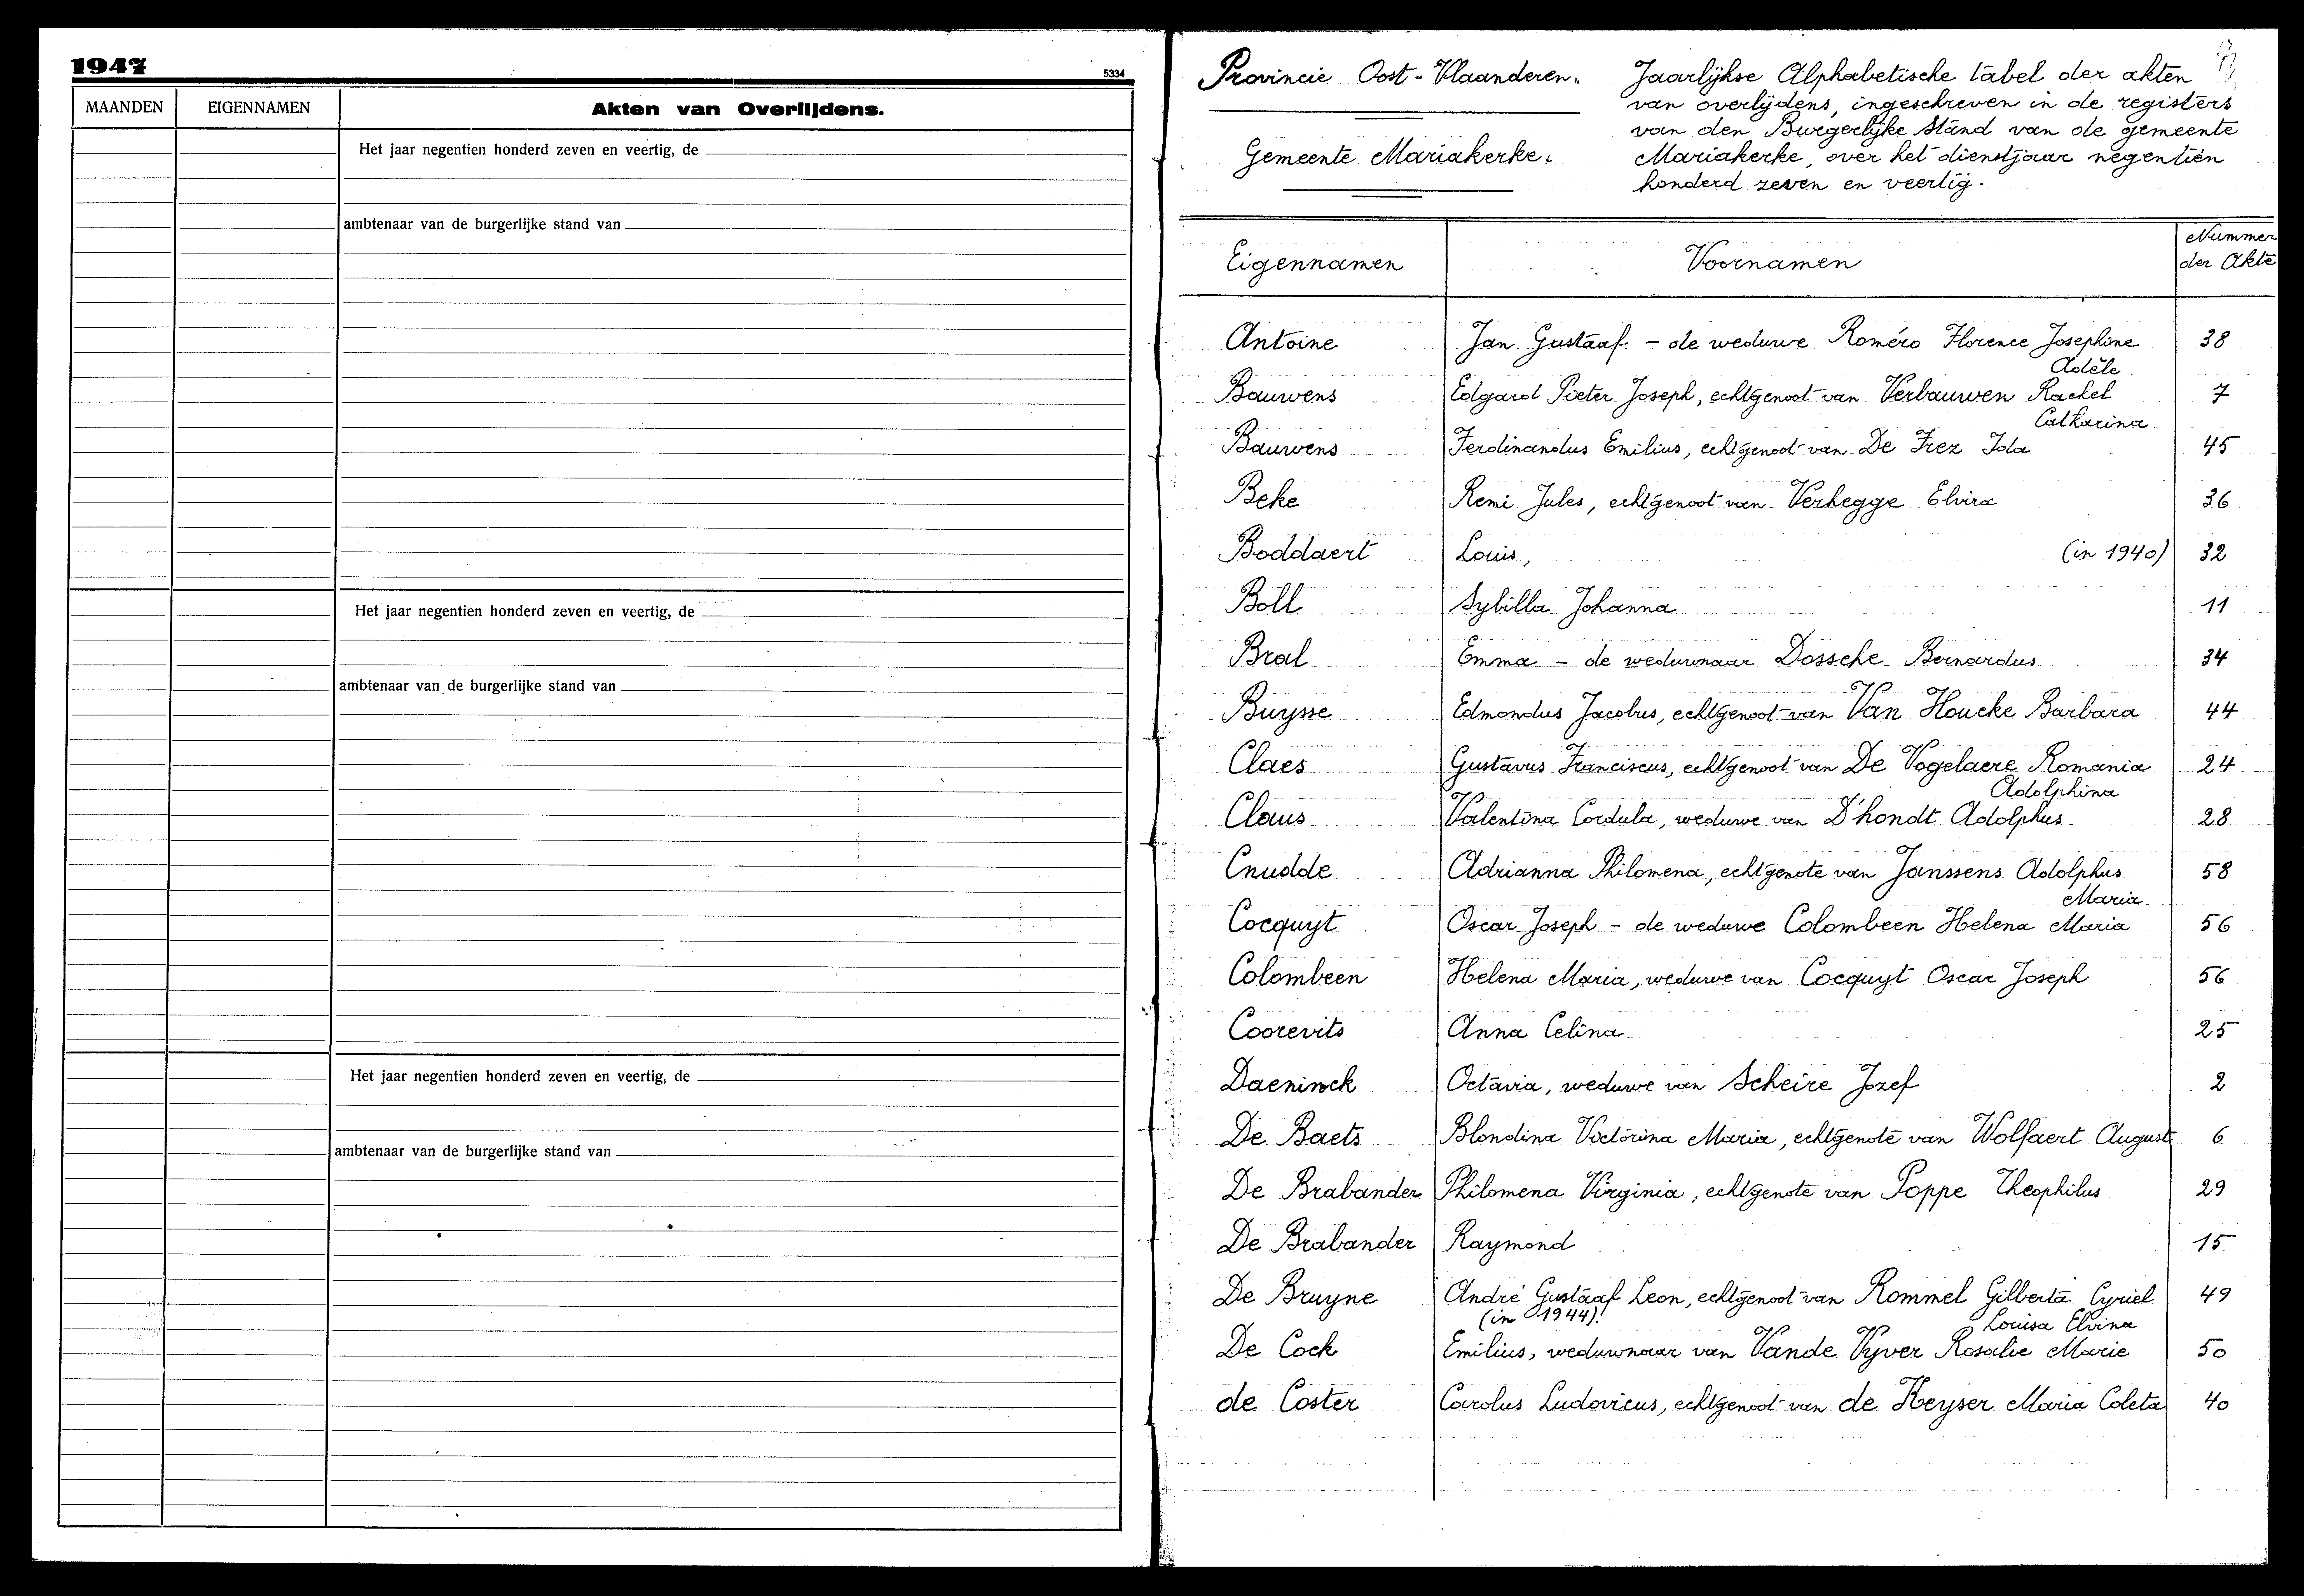 1947
5334
MAANDEN EIGENNAMEN Akten van Overlijdens.
Het jaar negentien honderd zeven en veertig, de
ambtenaar van de burgerlijke stand van
Het jaar negentien honderd zeven en veertig, de
ambtenaar van de burgerlijke stand van
Het jaar negentien honderd zeven en veertig, de
ambtenaar van de burgerlijke stand van
Provincie Oost-Vlaanderen.
Gemeente Mariakerke.
Jaarlijkse Alphabetische tabel der akten
van overlijdens, ingeschreven in de registers
van den Burgerlijke Stand van de gemeente
Mariakerke, over het dienstjaar negentien
honderd zeven en veertig.
Eigennamen Voornamen Nummer
der Akte
Antoine Jan Gustaaf - de weduwe Roméro Florence Josephine 38
Adèle
Bauwens Edgard Pieter Joseph, echtgenoot van Verbauwen Rachel 7
Catharina
Bauwens Ferdinandus Emilius, echtgenoot van De Frez Ida 45
Beke Remi Jules, echtgenoot van Verhegge Elvira 36
Boddaert Louis, (in 1940) 32
Boll Sybilla Johanna 11
Bral Emma - de weduwnaar Dossche Bernardus 34
Buysse Edmondus Jacobus, echtgenoot van Van Houcke Barbara 44
Claes Gustavus Franciscus, echtgenoot van De Vogelaere Romania 24
Adolphina
Claus Valentina Cordula, weduwe van D'hondt Adolphus 28
Cnudde Adrianna Philomena, echtgenote van Janssens Adolphus 58
Maria
Cocquyt Oscar Joseph - de weduwe Colombeen Helena Maria 56
Colombeen Helena Maria, weduwe van Cocquyt Oscar Joseph 56
Coorevits Anna Celina 25
Daeninck Octavia, weduwe van Scheire Jozef 2
De Baets Blondina Victorina Maria, echtgenote van Wolfaert August 6
De Brabander Philomena Virginia, echtgenote van Poppe Theophilus 29
De Brabander Raymond 15
De Bruyne André Gustaaf Leon, echtgenoot van Rommel Gilberta Cyriel 49
(in 1944). Louisa Elvina
De Cock Emilius, weduwnaar van Vande Vyver Rosalie Marie 50
de Coster Carolus Ludovicus, echtgenoot van de Keyser Maria Coleta 40